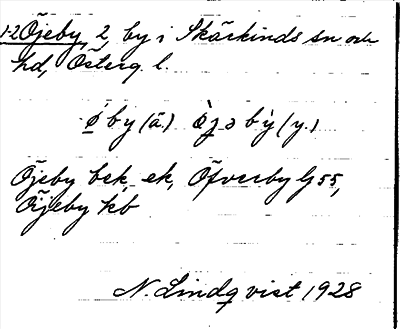 1-2 Öjeby, 2, by i Skärkinds sn och
hd, Österg. l.
ǿ by (ä.) ø̀jə bỳ (y.)
Öjeby bek, ek, Öfverby Gj 55,
Öijeby kb
N. Lindqvist 1928